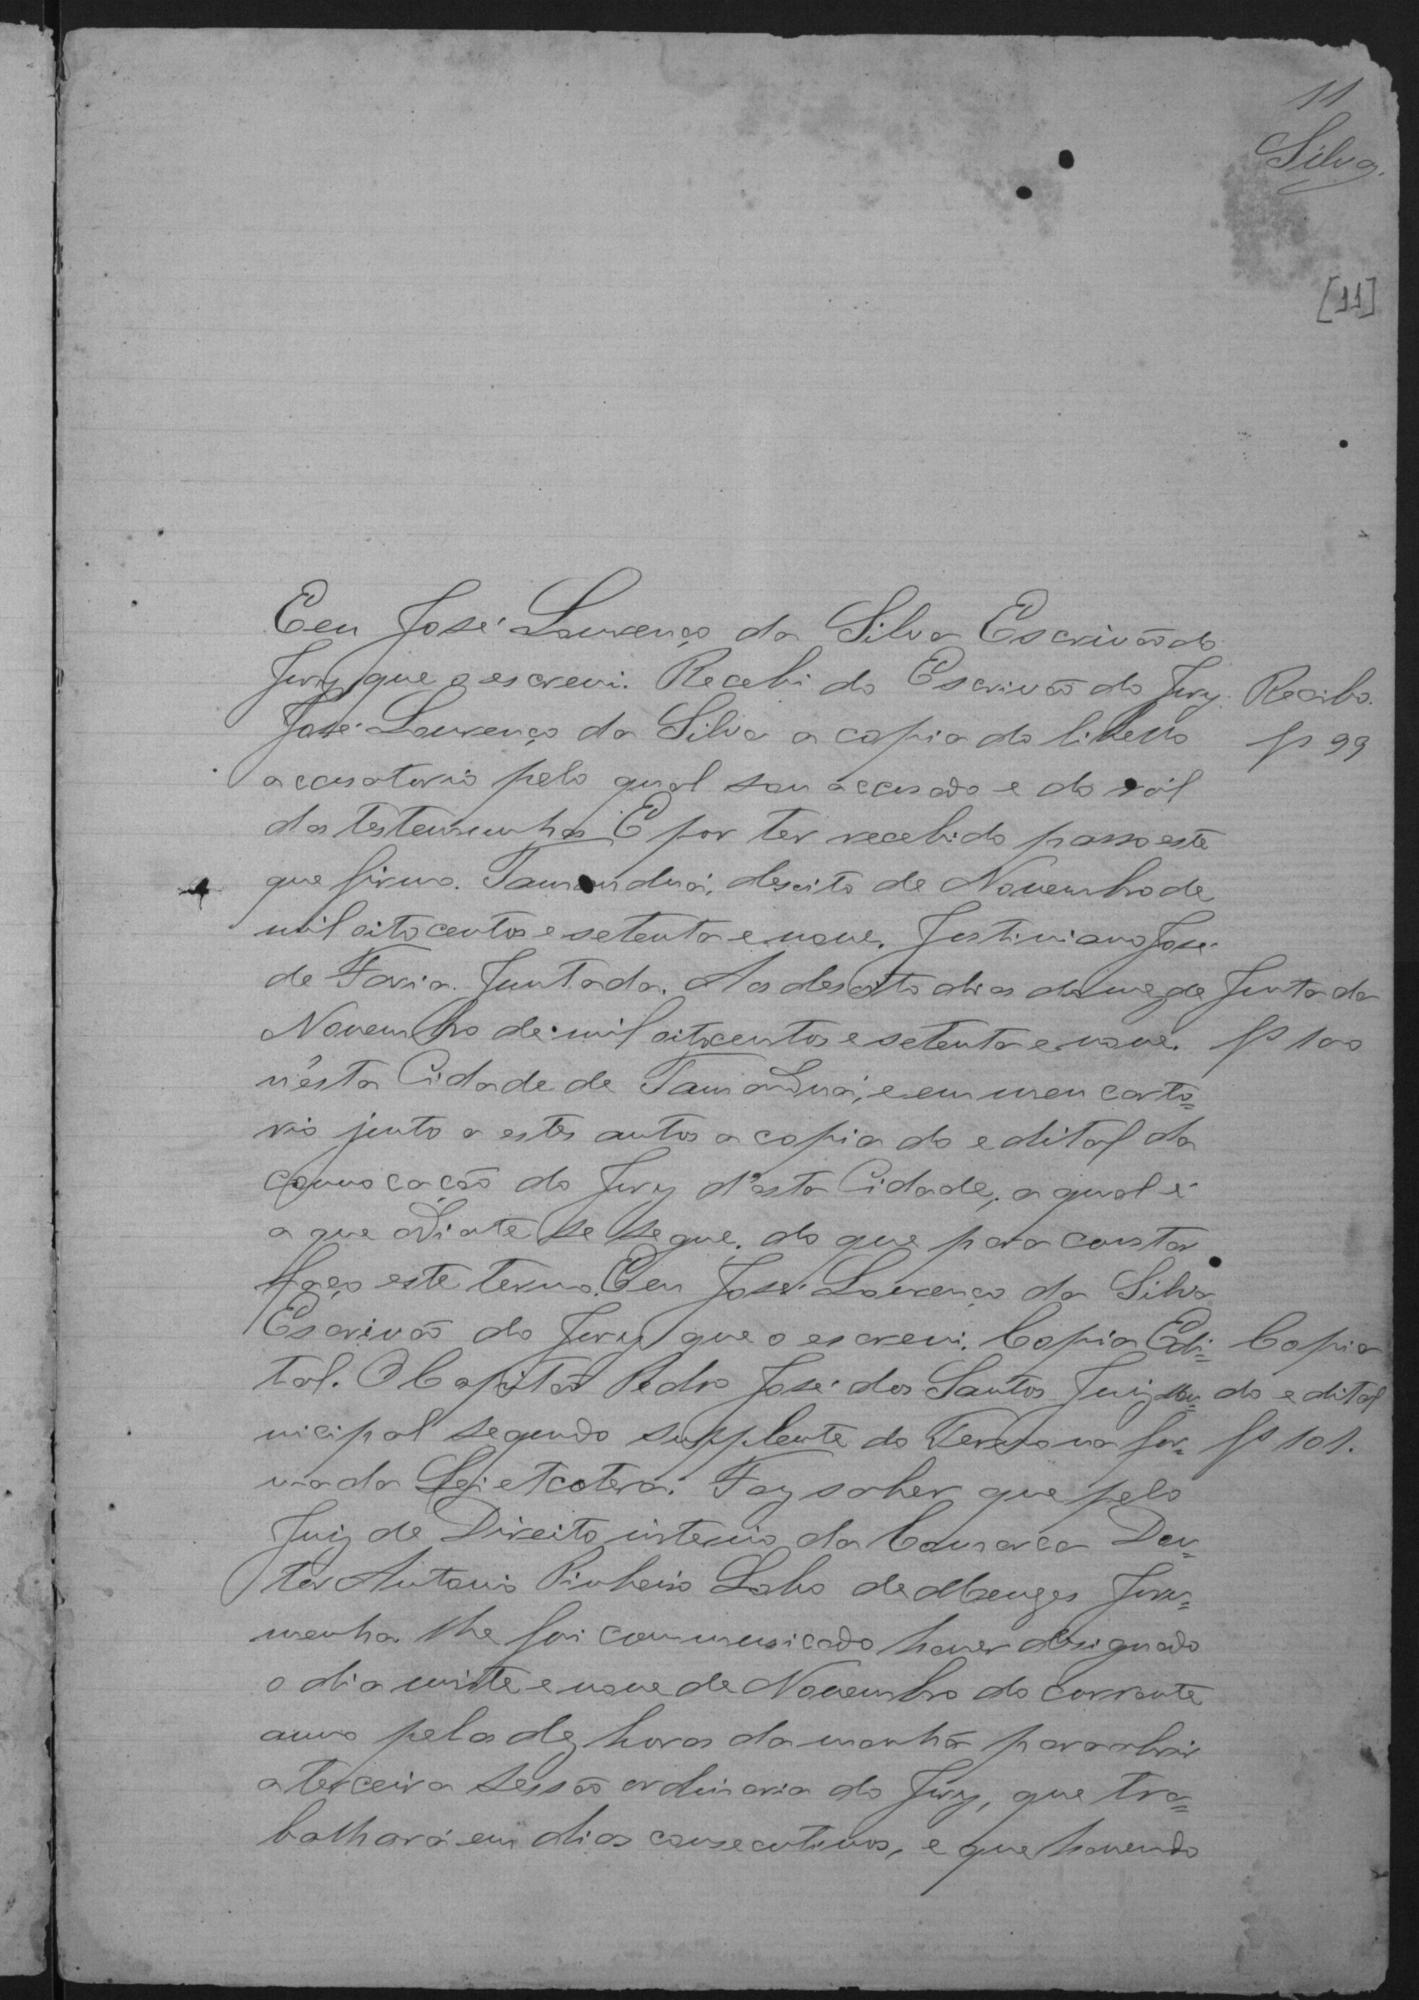 11
Silva.
[11]
Eeu José Lourenço da Silva Escrivão do
Jury que o escrevi. Recebi do Escrivão do Jury. Recibo.
José Lourenço da Silva a copia do libello fs 99
accusatorio pelo qual sou accusado e do rol
das testemunhas. E por ter recebido passo este
que firmo. Tamanduá, desoito de Novembro de
mil oito centos e setenta e nove. Justiniano José
de Faria. Juntada. Aos desoito dias do mez de Juntada
Novembro de mil oitocentos e setenta e nove. fs 100
n'esta Cidade de Tamanduá, e em meu carto=
rio junto a estes autos a copia do edital da
convocação do Jury d'esta Cidade, a qual é
a que adiante se segue, do que para constar
faço este termo. Eeu José Lourenço da Silva
Escrivão do Jury que o escrevi. Copia Edi= Copia
tal. O Capitão Pedro José dos Santos Juiz Mu= do edital
nicipal segundo supplente do Termo na for= fs 101.
ma da Lei etcetera. Faz saber que pelo
Juiz de Direito interino da Comarca Dou=
tor Antonio Pinheiro Lobo de Menezes Juru=
menha lhe foi communicado haver designado
o dia vinte e nove de Novembro do corrente
anno pelas dez horas da manhã para abrir
a terceira sessão ordinaria do Jury, que tra=
balhará em dias consecutivos, e que havendo